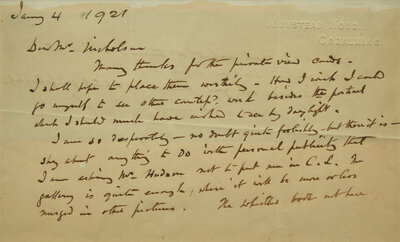 Jany 4 1921
MUNSTEAD WOOD,
GODALMING.
Dear Mr. Nicholson
Many thanks for the private view cards -
I shall hope to place them worthily - How I wish I could
go myself to see other work besides the portrait
which I should much have wished to see by daylight.
I am so desperately - no doubt quite foolishly - but there it is -
shy about anything to do with personal publicity that
I am asking Mr. Hudson not to put me in C.L. The
gallery is quite enough, where it will be more or less
merged in other pictures. The whistled both not here